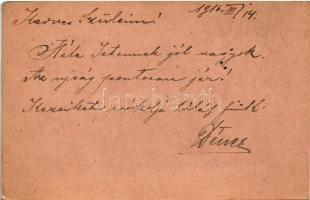 1916. III/14.
Kedves Szüleim!
Hála Istennek jól vagyok.
Az ujság pontosan jár!
Kezeiket csókolja hálás fiuk:
Dencz